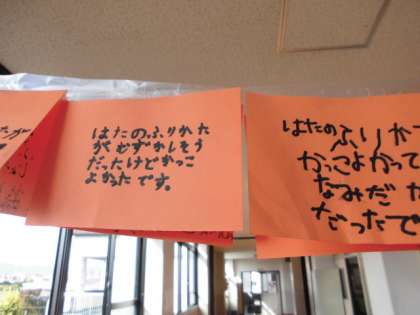 はたのふりかた
がむずかしそう
だったけどかっこ
よかったです。
はたのふりか
かっこよかって
なみだだ
だったで